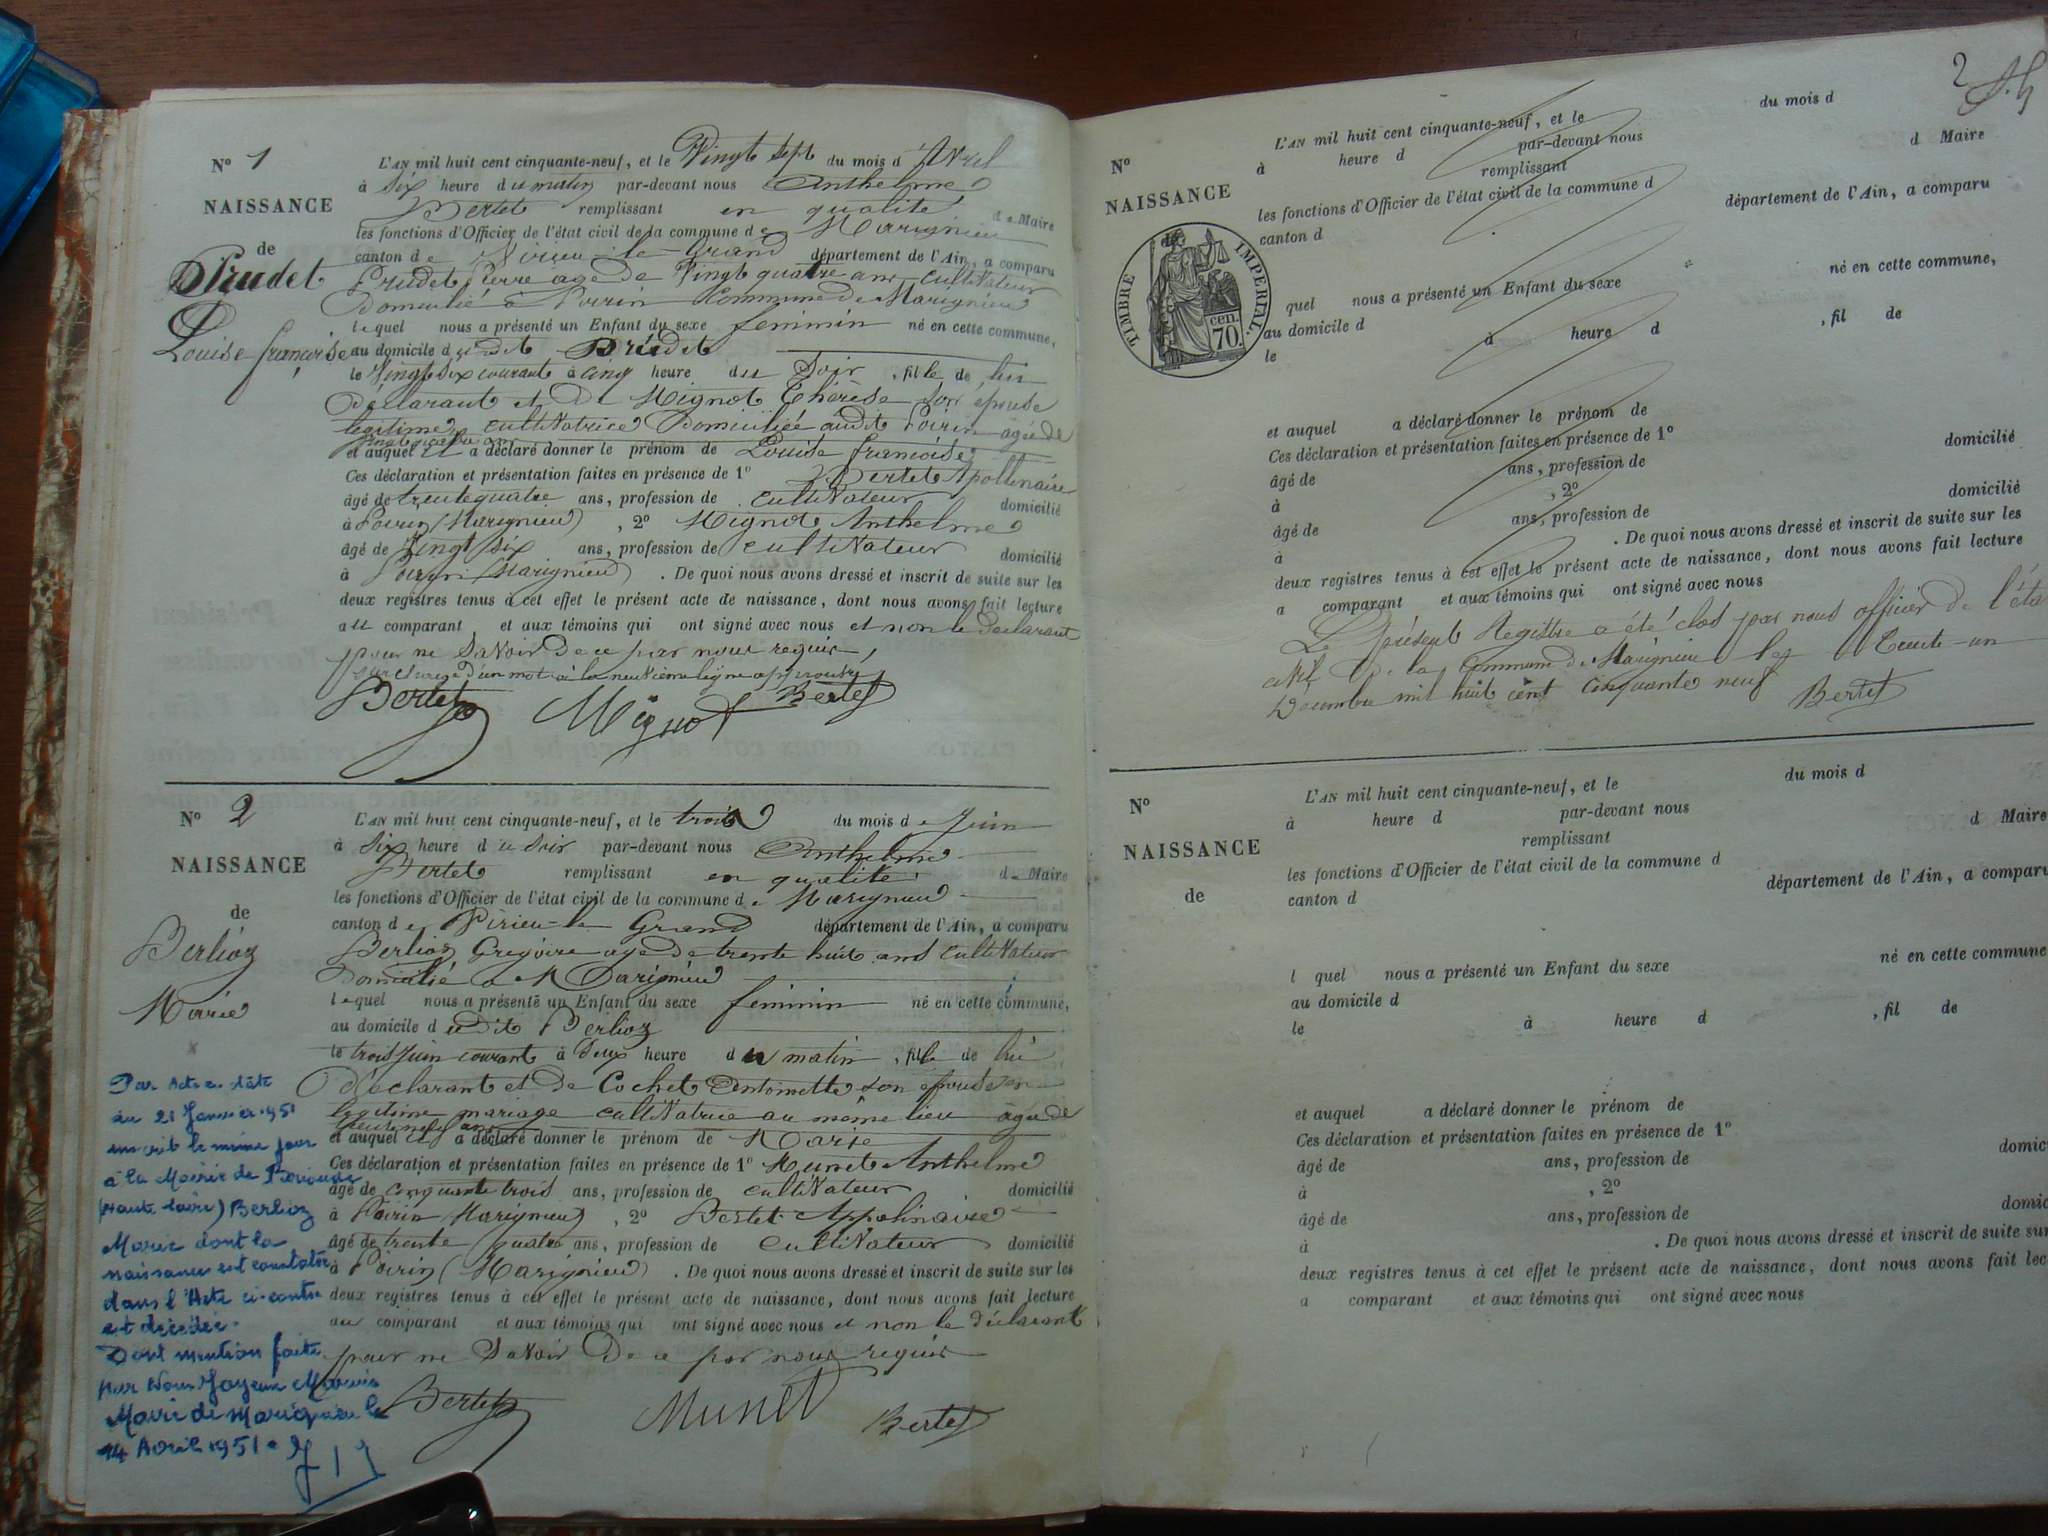 N° 1
NAISSANCE
de
Prudet
Louise françoise
L'AN mil huit cent cinquante-neuf, et le Vingt Sept du mois d'Avril
à Six heure du matin par-devant nous Anthelme
Bertet remplissant en qualité de Maire
les fonctions d'Officier de l'état civil de la commune de Marignieu
canton de Virieu-le-Grand département de l'Ain, a comparu
Prudet Pierre agé de Vingt quatre ans Cultivateur
Domicilié à Poirin Commune de Marignieu
lequel nous a présenté un Enfant du sexe feminin né en cette commune,
au domicile dudit Prudet
le Vingt Six courant à cinq heure du Soir, fille de lui
Déclarant et de Mignot Thérèse son épouse
légitime cultivatrice Domiciliée audit Poirin agée de
vingt quatre ans
et auquel il a déclaré donner le prénom de Louise françoise
Ces déclaration et présentation faites en présence de 1° Bertet Apollinaire
âgé de trente quatre ans, profession de cultivateur domicilié
à Poirin (Marignieu), 2° Mignot Anthelme
âgé de Vingt six ans, profession de cultivateur domicilié
à Poirin (Marignieu). De quoi nous avons dressé et inscrit de suite sur les
deux registres tenus à cet effet le présent acte de naissance, dont nous avons fait lecture
au comparant et aux témoins qui ont signé avec nous et non le déclarant
pour ne Savoir de ce par nous requis,
surchargé d'un mot à la neuvième ligne approuvé
Bertet Mignot Bertet
N° 2
NAISSANCE
de
Berlioz
Marie
L'AN mil huit cent cinquante-neuf, et le trois du mois de Juin
à Six heure du Soir par-devant nous Anthelme
Bertet remplissant en qualité de Maire
les fonctions d'Officier de l'état civil de la commune de Marignieu
canton de Virieu-le Grand département de l'Ain, a comparu
Berlioz Gregoire age de trente huit ans cultivateur
Domicilié a Marignieu
lequel nous a présenté un Enfant du sexe feminin né en cette commune,
au domicile dudit Berlioz
le trois Juin courant à Deux heure du matin, fille de lui
déclarant et de Cochet Antoinette son épouse en
legitime mariage cultivatrice au même lieu agée de
trente neuf ans
et auquel il a déclaré donner le prénom de Marie
Ces déclaration et présentation faites en présence de 1° Munet Anthelme
âgé de cinquante trois ans, profession de cultivateur domicilié
à Poirin Marignieu, 2° Bertet Appolinaire
âgé de trente quatre ans, profession de cultivateur domicilié
à Poirin (Marignieu). De quoi nous avons dressé et inscrit de suite sur les
deux registres tenus à cet effet le présent acte de naissance, dont nous avons fait lecture
au comparant et aux témoins qui ont signé avec nous et non le déclarant
pour ne Savoir de ce par nous requis
Bertet Munet Bertet
Par Acte en date
du 21 Janvier 1951
inscrit le même jour
à la Mairie de Brioude
(Haute Loire) Berlioz
Marie dont la
naissance est constatée
dans l'Acte ci-contre
est décédée.
Dont mention faite
par Nous Joyeux Marius
Maire de Marignieu le
14 Avril 1951.
2
N°
NAISSANCE
de
TIMBRE IMPÉRIAL.
cen.
70.
L'AN mil huit cent cinquante-neuf, et le du mois d
à heure d par-devant nous
remplissant d Maire
les fonctions d'Officier de l'état civil de la commune d
canton d département de l'Ain, a comparu
quel nous a présenté un Enfant du sexe né en cette commune,
au domicile d
le à heure d , fil de
et auquel a déclaré donner le prénom de
Ces déclaration et présentation faites en présence de 1°
âgé de ans, profession de domicilié
à , 2°
âgé de ans, profession de domicilié
à . De quoi nous avons dressé et inscrit de suite sur les
deux registres tenus à cet effet le présent acte de naissance, dont nous avons fait lecture
a comparant et aux témoins qui ont signé avec nous
Le présent Registre a été clos par nous officier de l'état
civil de la Commune de Marignieu le Trente-un
Décembre mil huit cent cinquante neuf Bertet
N°
NAISSANCE
de
L'AN mil huit cent cinquante-neuf, et le du mois d
à heure d par-devant nous
remplissant d Maire
les fonctions d'Officier de l'état civil de la commune d
canton d département de l'Ain, a comparu
l quel nous a présenté un Enfant du sexe né en cette commune
au domicile d
le à heure d , fil de
et auquel a déclaré donner le prénom de
Ces déclaration et présentation faites en présence de 1°
âgé de ans, profession de domici
à , 2°
âgé de ans, profession de domic
à . De quoi nous avons dressé et inscrit de suite sur
deux registres tenus à cet effet le présent acte de naissance, dont nous avons fait lec
a comparant et aux témoins qui ont signé avec nous